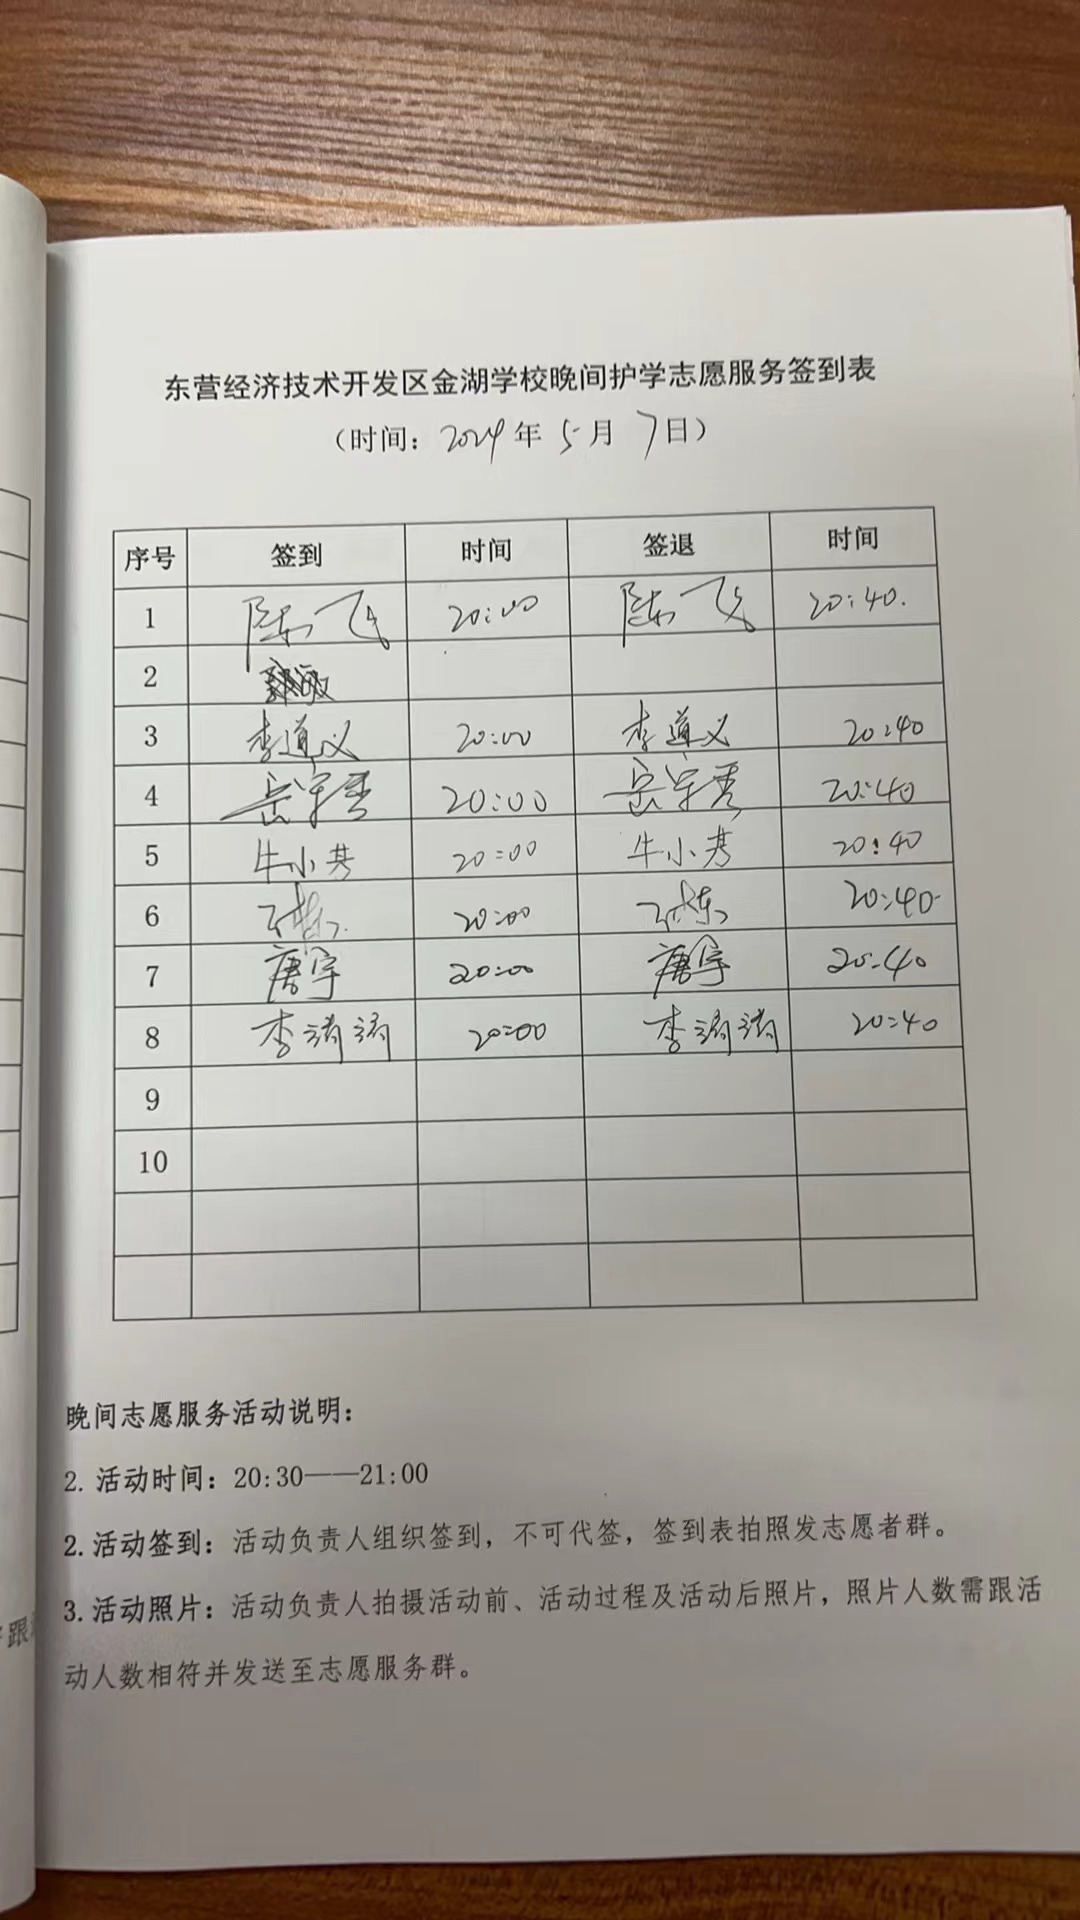 东营经济技术开发区金湖学校晚间护学志愿服务签到表
（时间：2024年 5月 7日）
序号 签到 时间 签退 时间
1 陈飞 20:00 陈飞 20:40.
2
3 李道义 20:00 李道义 20:40
4 岳宇秀 20:00 岳宇秀 20:40
5 牛小芳 20:00 牛小芳 20:40
6 20:00 20:40
7 唐宇 20:00 唐宇 20:40
8 李涛涛 20:00 李涛涛 20:40
9
10
晚间志愿服务活动说明：
2. 活动时间：20:30——21:00
2. 活动签到：活动负责人组织签到，不可代签，签到表拍照发志愿者群。
3. 活动照片：活动负责人拍摄活动前、活动过程及活动后照片，照片人数需跟活
动人数相符并发送至志愿服务群。
跟